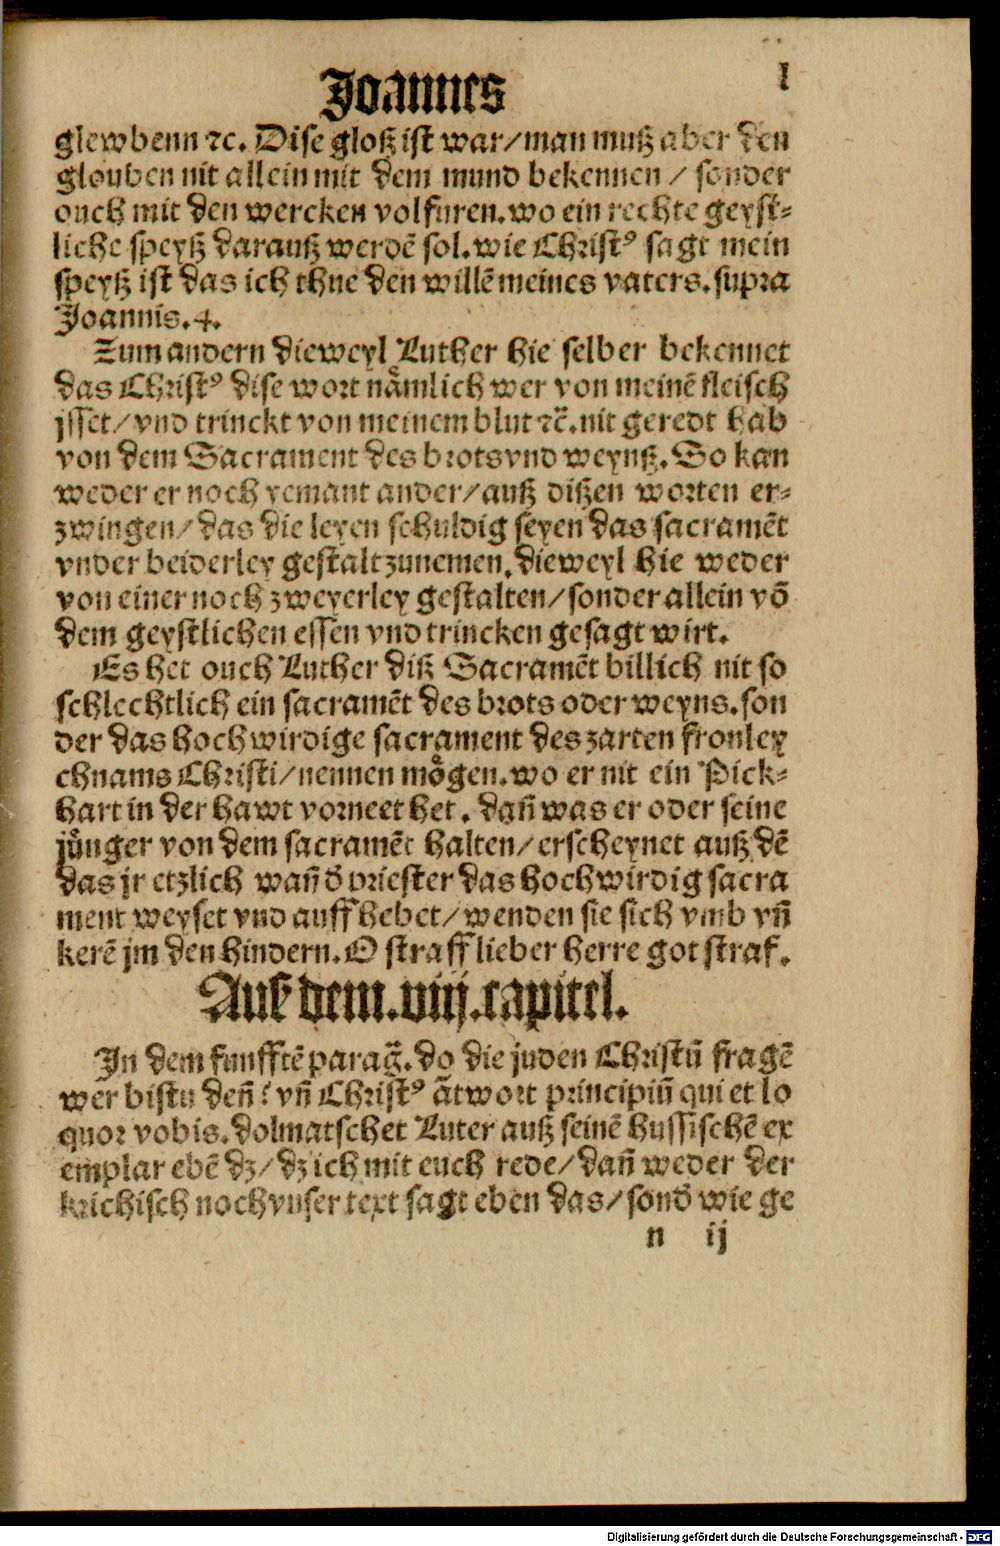 Joannes
l
glewbenn ⁊c. Dise gloß ist war/man muß aber den
glouben nit allein mit dem mund bekennen / sonder
ouch mit den wercken volfuren.wo ein rechte geyst⸗
liche speyß darauß werdē sol.wie Christ⁹ sagt mein
speyß ist das ich thue den willē meines vaters.supra
Joannis.4.
Zum andern dieweyl Luther hie selber bekennet
das Christ⁹ dise wort nåmlich wer von meinē fleisch
jsset/vnd trinckt von meinem blut ⁊c̄.nit geredt hab
von dem Sacrament des brots vnd weynß.So kan
weder er noch yemant ander/auß dißen worten er⸗
zwingen/das die leyen schuldig seyen das sacramēt
vnder beiderley gestalt zunemen.dieweyl hie weder
von einer noch zweyerley gestalten/sonder allein vō
dem geystlichen essen vnd trincken gesagt wirt.
Es het ouch Luther diß Sacramēt billich nit so
schlechtlich ein sacramēt des brots oder weyns.son
der das hochwirdige sacrament des zarten fronley
chnams Christi/nennen mögen.wo er nit ein Pick⸗
hart in der hawt vorneet het. dañ was er oder seine
jůnger von dem sacramēt halten/erscheynet auß dē
das jr etzlich wañ d̄ priester das hochwirdig sacra
ment weyset vnd auffhebet/wenden sie sich vmb vñ
kerē jm den hindern.O straff lieber herre got straf.
Auß dem.viij.capitel.
In dem funfftē parag̃.do die juden Christū fragē
wer bistu deñ? vñ Christ⁹ ātwort principiū qui et lo
quor vobis.dolmatschet Luter auß seinē hussischē ex
emplar ebē dz/dz ich mit euch rede/dañ weder der
krichisch noch vnser text sagt eben das/sond̄ wie ge
n ij
Digitalisierung gefördert durch die Deutsche Forschungsgemeinschaft - DFG